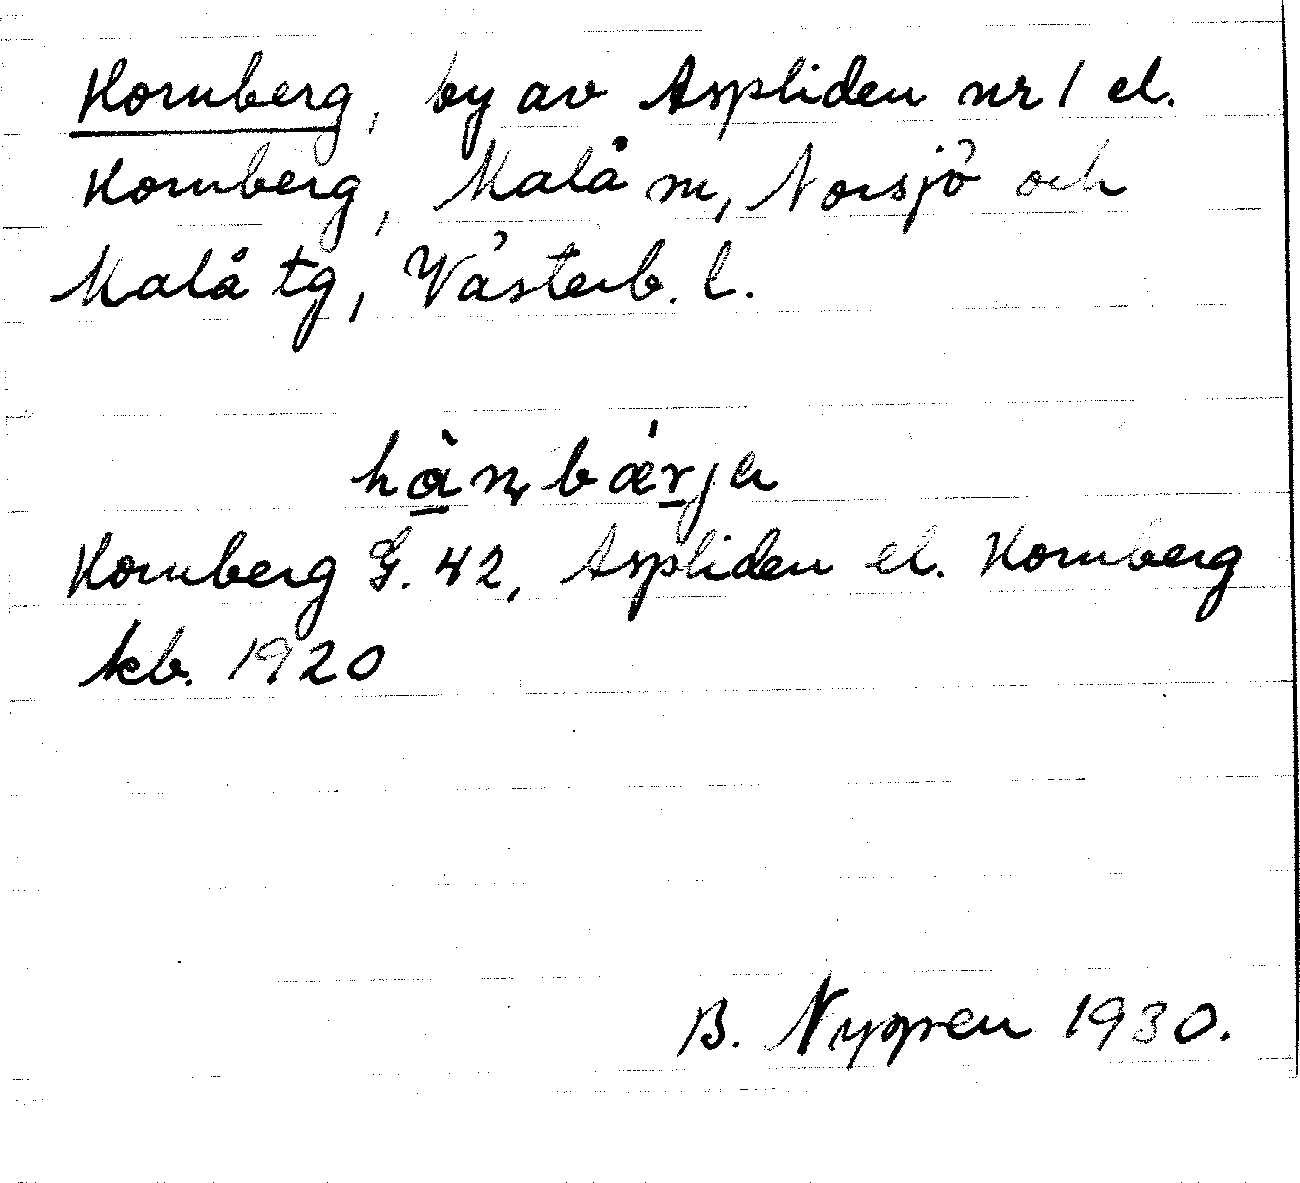 Hornberg, by av Aspliden nr 1 el.
Hornberg, Malå sn, Norsjö och
Malå tg, Västerb. l.
hɑ̱̀ɳbǽṟja
Hornberg G. 42, Aspliden el. Hornberg
kb. 1920
B. 1930.